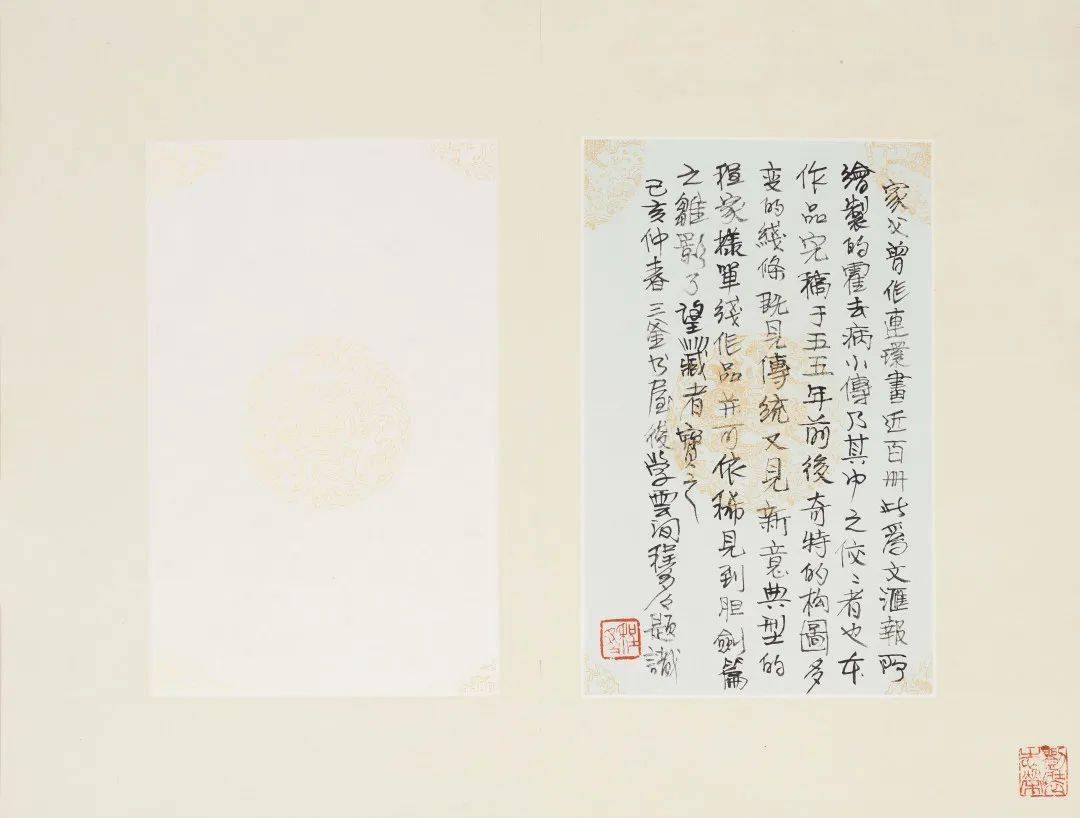 家父曾作連環畫近百冊此爲文滙報所
繪製的霍去病小傳乃其中之佼〻者也本
作品完稿于五五年前後奇特的构圖多
变的綫條既見傳統又見新意典型的
程家樣單綫作品并可依稀見到胆劍篇
之雛影了望藏者寶之
己亥仲春三釜书屋後学雲间程多多題識
程多多